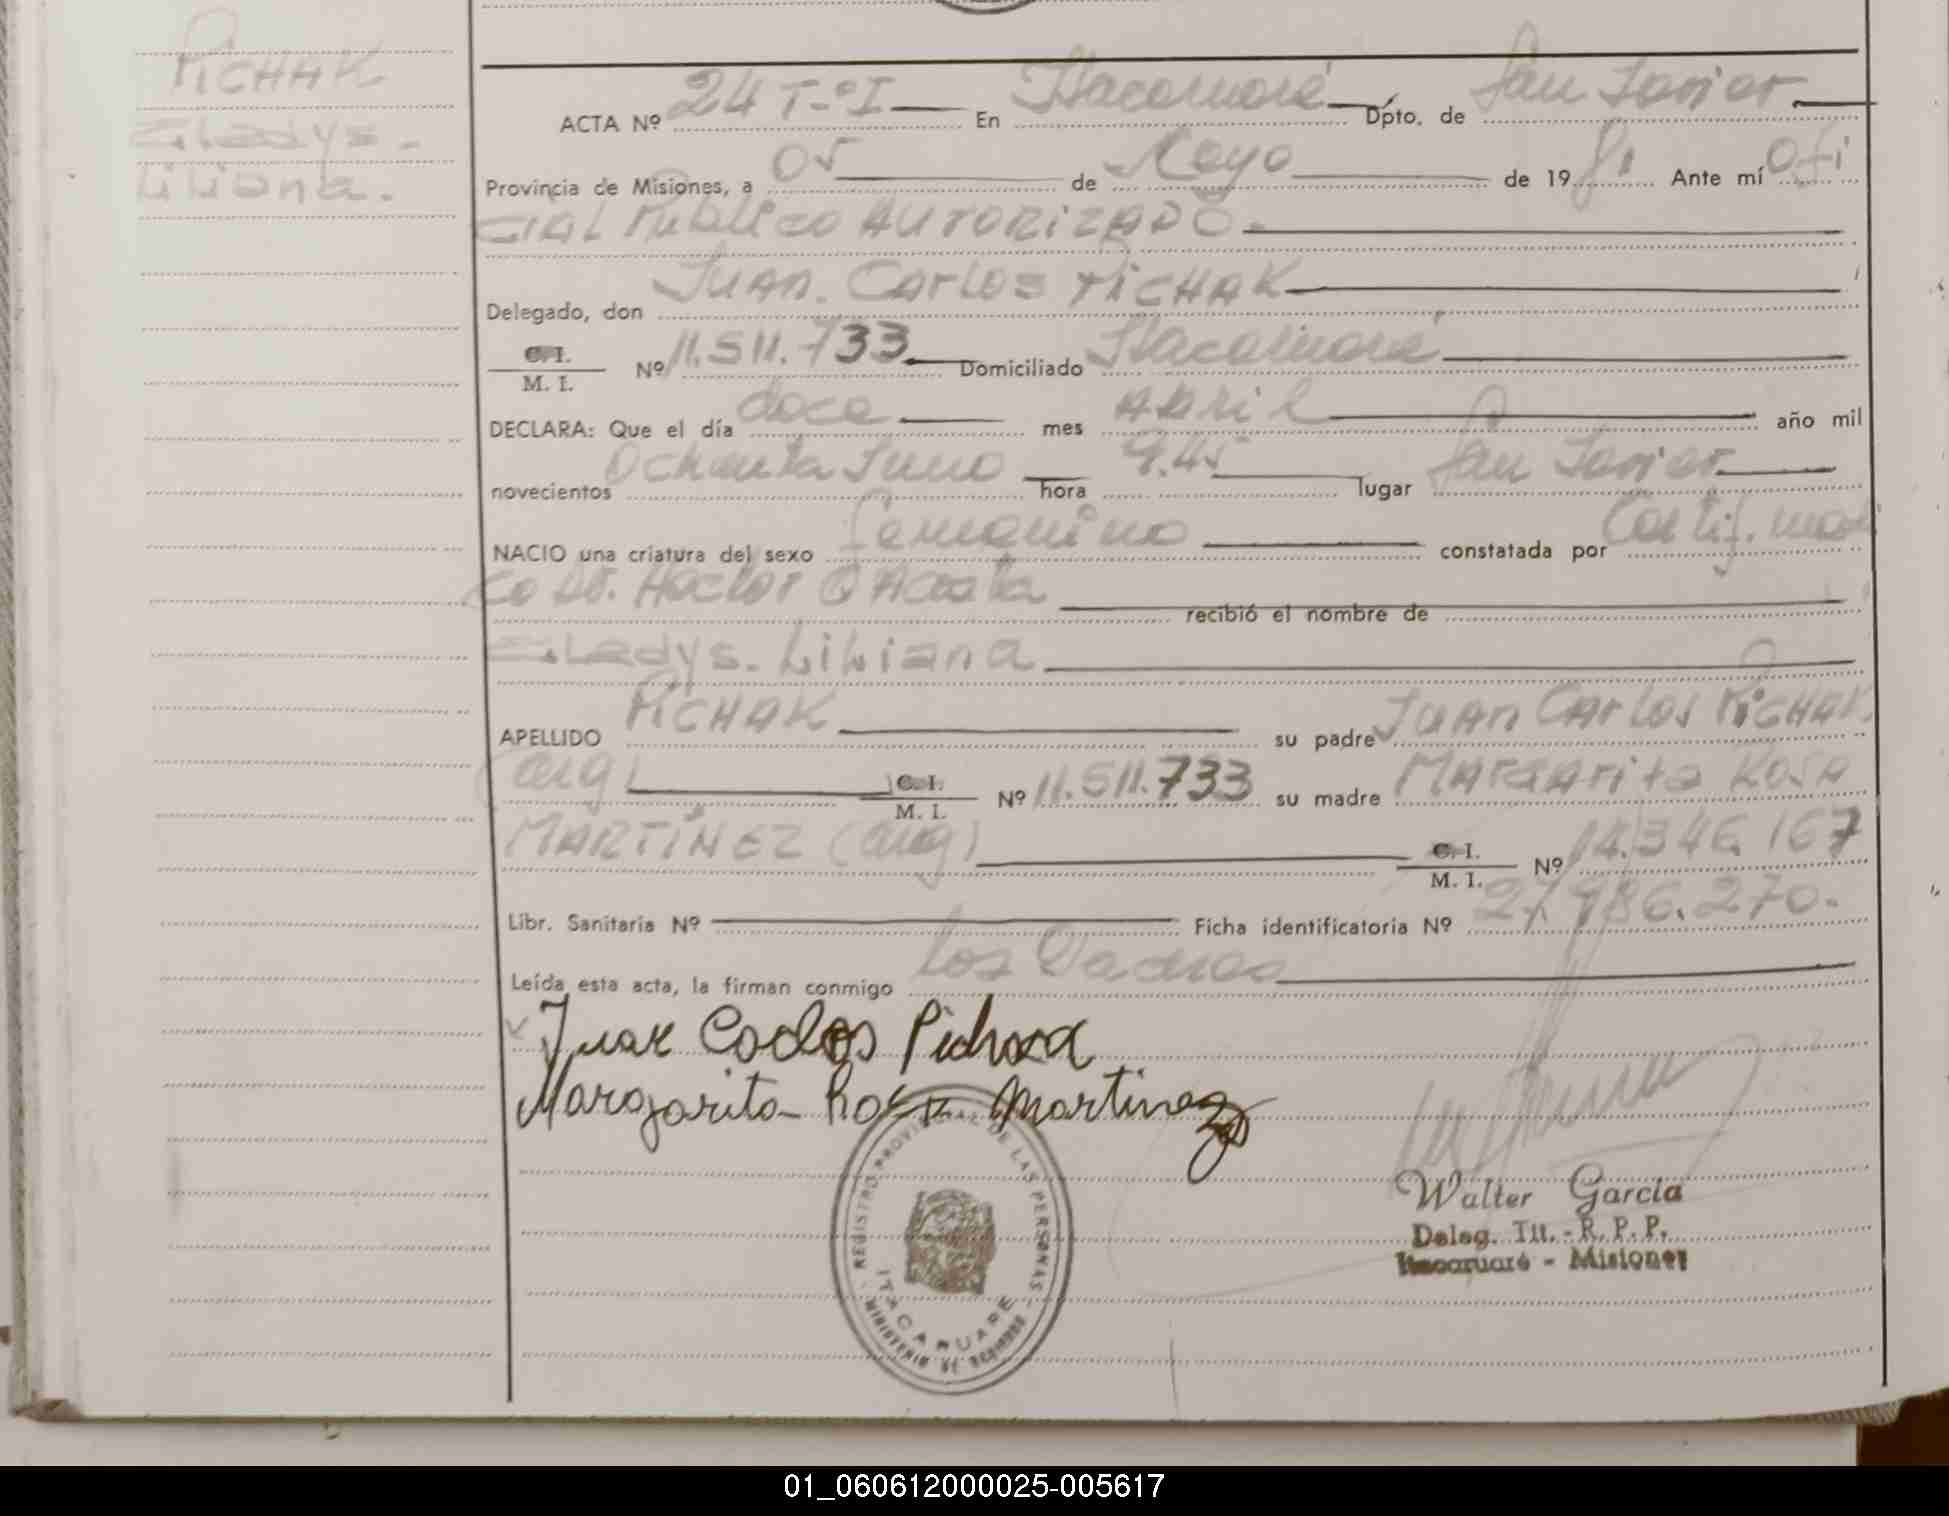 PICHAK
Gladys.
Liliana.
ACTA Nº 24 T-º I En Itacaruaré Dpto. de San Javier
Provincia de Misiones, a 05 de Mayo de 1981 Ante mí Ofi
cial Publico AUTORIZADO.
Delegado, don Juan. Carlos PICHAK
C. I. / M. I. Nº 11.511.733 Domiciliado Itacaruaré
DECLARA: Que el día doce mes Abril año mil
novecientos Ochenta Iuno hora 9.45 lugar San Javier
NACIO una criatura del sexo femenino constatada por Certif. med
co Dr. Hector O Acosta recibió el nombre de
Gladys. Liliana
APELLIDO PICHAK su padre Juan Carlos PICHAK
(arg) C. I. / M. I. Nº 11.511.733 su madre MARGARITA ROSA
MARTÍNEZ (arg) C. I. / M. I. Nº 14.346.167
Libr. Sanitaria Nº Ficha identificatoria Nº 27.986.270.
Leída esta acta, la firman conmigo Los Padres
Juan Carlos
Margarita Rosa Martinez
REGISTRO PROVINCIAL DE LAS PERSONAS
ITACARUARE
MINISTERIO DE GOBIERNO
Walter García
Deleg. Tit. - R. P. P.
Itacaruaré - Misiones
01_060612000025-005617